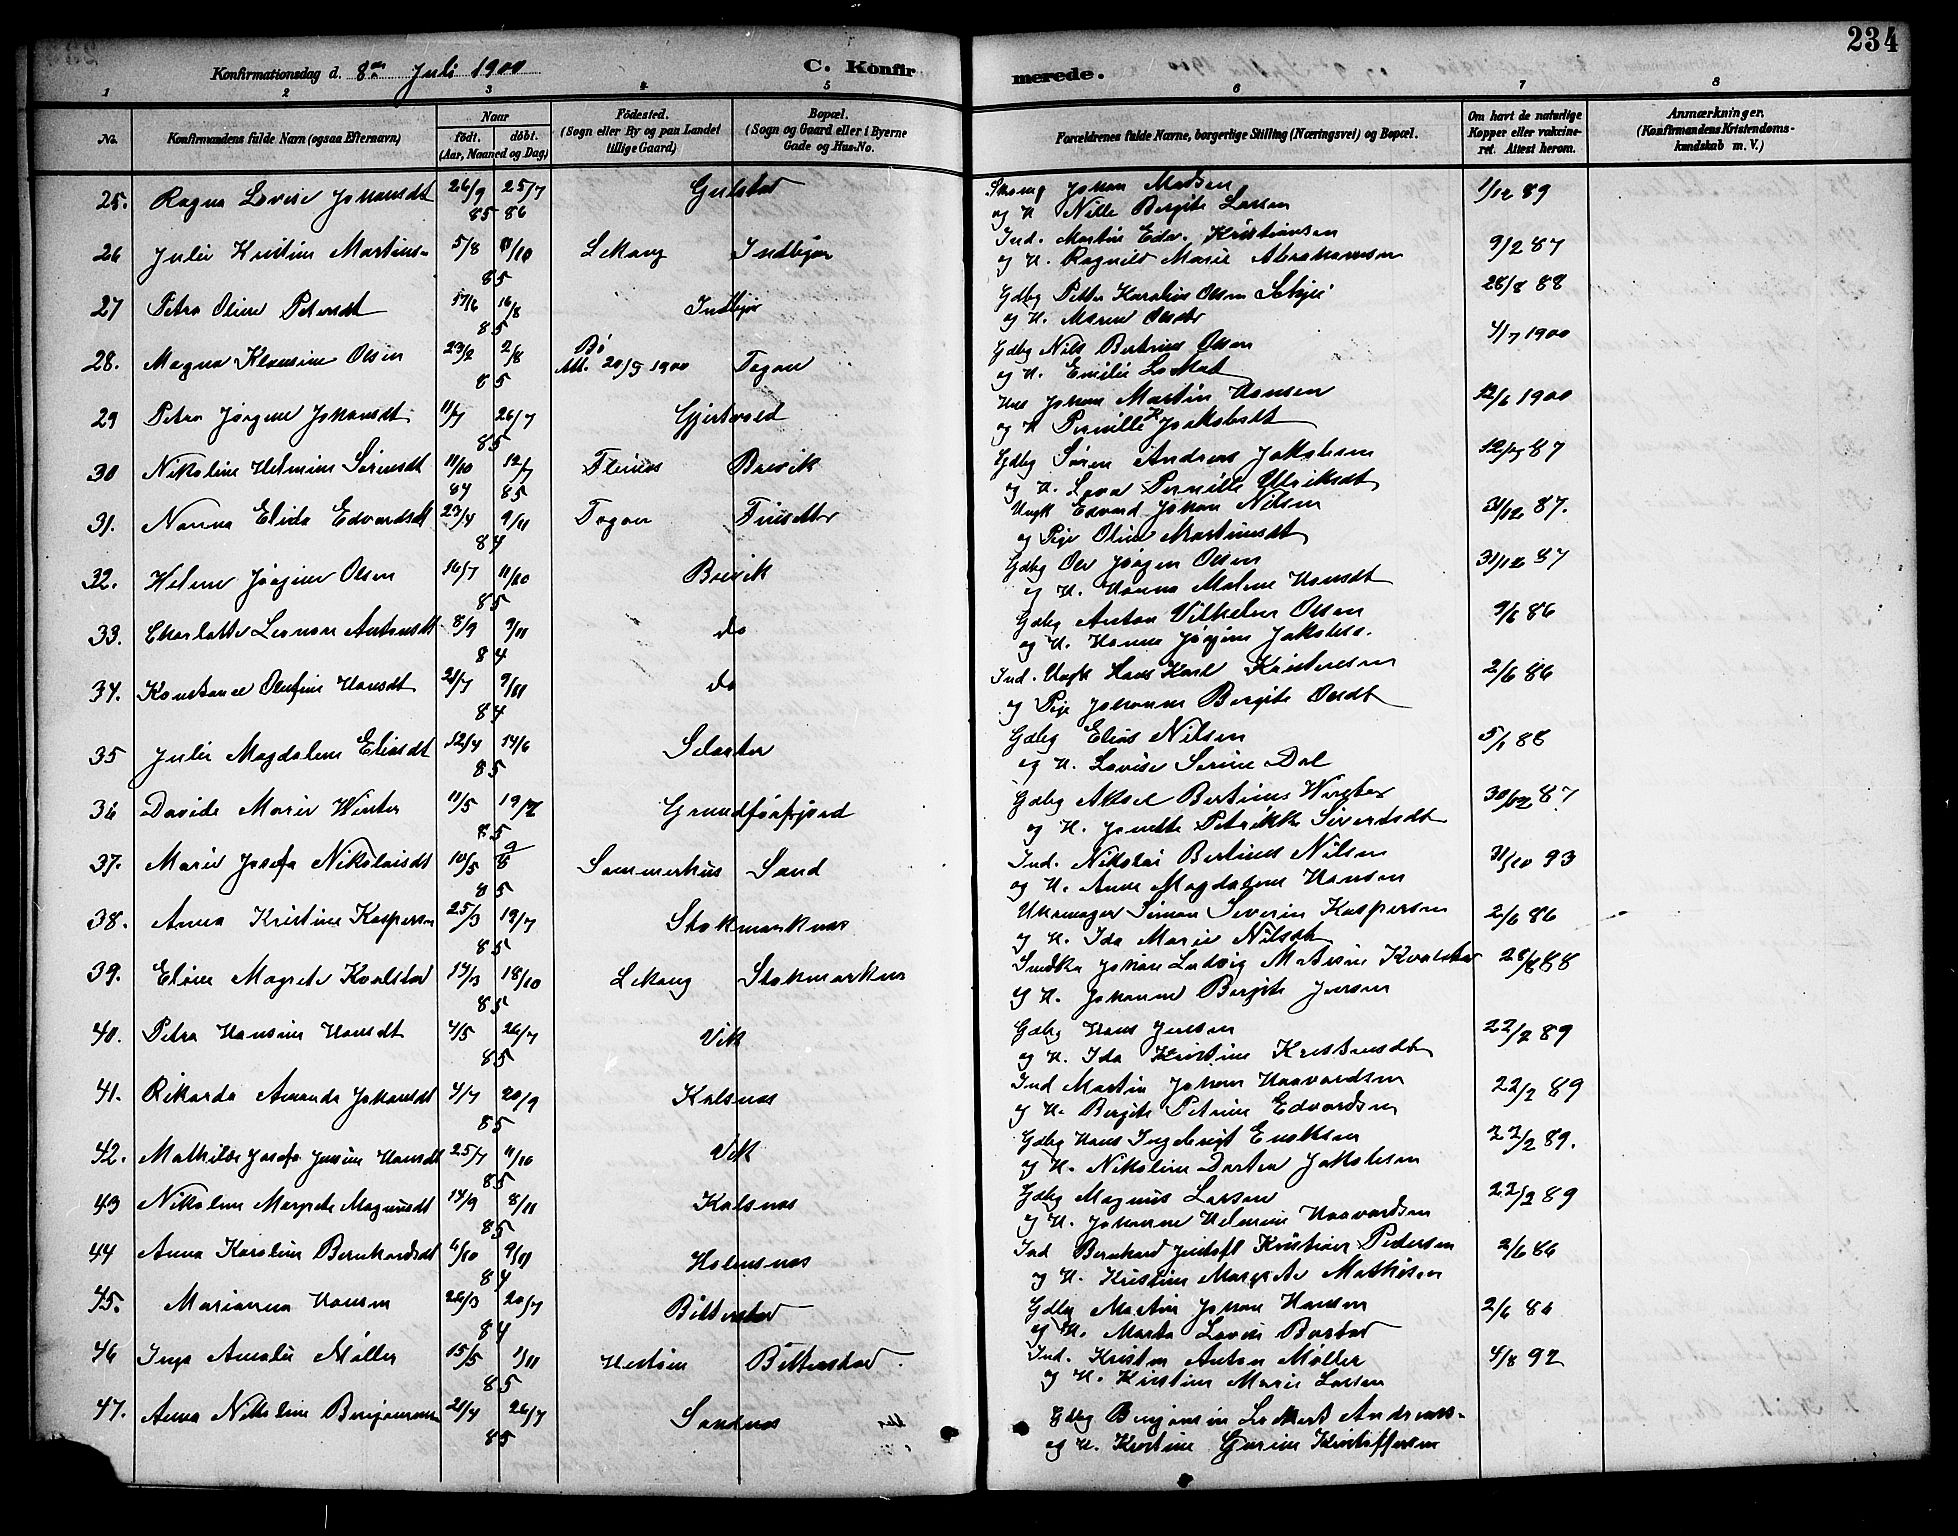 234
Konfirmationsdag d. 8de Juli 1900 C. Konfirmerede.
1 2 3 4 5 6 7 8
No. Konfirmandens fulde Navn (ogsaa Efternavn) Naar født. døbt. (Aar, Maaned og Dag) Fødested. (Sogn eller By og paa Landet tillige Gaard) Bopæl. (Sogn og Gaard eller i Byerne Gade og Hus-No. Forældrenes fulde Navne, borgerlige Stilling (Næringsvei) og Bopæl. Om havt de naturlige Kopper eller vaccineret. Attest herom. Anmærkninger. (Konfirmandens Kristendomskundskab m. V.)
25. Ragna Lovise Johansdt 26/9 85 25/7 86 Gulstad Johan Madsen 1/12 89
og H. Nille Bergite Larsen
26 Julie Kristine Martins- 5/8 11/10 85 Lekang Indbjor Ind. Martin Edv. Kristiansen 9/2 87
og H. Ragnild Marie Abrahamsen
27 Petra Oline Petersdt 17/6 16/8 85 Indbjor Gdbg Petter Karolius Olsen 28/8 88
og H. Maren Olsdtr
28. Magna Klausine Olsen 23/2 2/8 85 Bø Att. 20/5 1900 Fagan Gdbg Nils Bertinus Olsen 4/7 1900
og H. Emilie
29 Petra Jørgine Johansdt. 11/7 26/7 85 Gjertvold Johan Martin Hansen 12/6 1900
og H. Pernille Jakobsdt
30 Nikoline Helmine Sørensdt 11/10 84 12/7 85 Fleines Brevik Gdbg Søren Andreas Jakobsen 12/7 87
og H. Lava Pernille Ulriksdt
31. Nanna Elida Edvardsdt 23/4 9/11 84 Fagan Finsæter Ungk Edvard Johan Nilsen 31/12 87.
og Pige Oline Martinusdt
32. Helene Jørgine Olsen 16/7 11/10 85 Brevik Gdbg Ole Jørgen Olsen 31/12 87
og H. Hanna Malene Hansdt
33. Charlotte Leonore Antonsdt 8/9 9/11 84 do Gdbg Anton Vilhelm Olsen 9/6 86
og H. Hanna Jørgine Jakobsd.
34. Konstance Olufine Hansdt 21/7 9/11 84 do Ind. Ungk Hans Karl Kristensen 2/6 86
og Pige Johanna Bergite Olsdt
35 Julie Magdalene Eliasdt 12/4 14/6 85 Selarter Gdbg Elias Nilsen 5/1 88
og H. Lovise Serine Dal
36 Davida Marie Winter 11/5 19/7 85 Grundførfjord Gdbg Aksel Bertinus Winter 30/12 87
og H. Jonetta Petrikke Sivertsdt
37. Marie Josefa Nikolaisdt 10/5 9/8 85 Sommerhus Sand Ind. Nikolai Bertinus Nilsen 31/10 93
og H. Anne Magdalene Hansen
38. Anna Kristine Kaspersen 25/3 19/7 85 Stokmarknes Uhrmager Simon Severin Kaspersen 2/6 86
og H. Ida Marie Nilsdt
39. Eline Magrete Kvalstad 14/3 18/10 85 Lekang Stokmarknes Snedker Johan Ludvig Kvalstad 28/8 88
og H. Johanne Bergite Jensen
40. Petra Hansine Hansdt 4/5 26/7 85 Vik Gdbg Hans Jensen 22/2 89
og H. Ida Kristine Kristensdt
41. Rikarda Amanda Johansdt 4/7 20/9 85 Kalsnes Ind Martin Johan Haavardsen 22/2 89
og H. Bergite Petrine Edvardsen
42. Mathilde Josefa Jensine Hansdt 25/7 11/10 85 Vik Gdbg Hans Ingebrigt Enoksen 22/2 89.
og H. Nikoline Dortea Jakobsen
43 Nikoline Margrete Magnusdt 14/9 8/11 85 Kalsnes Gdbg Magnus Larsen 22/2 89
og H. Johanne Helmine Haavardsen
44 Anna Karoline Bernhardsdt 6/10 9/11 84 Holmsnes Ind Bernhard Kristian Pedersen 2/6 86
og H. Kristine Margrete Mathisen
45. Marianna Hansen 26/3 20/7 84 Bitterstad Gdbg Martin Johan Hansen 2/6 86
og H. Marta Lovise Barstad
46 Inga Amalie Møller 15/5 1/11 85 Hestøen Bitterstad. Ind. Kristen Anton Møller 4/8 92
og H. Kirstine Marie Larsen
47. Anna Nikoline Benjaminsen 21/4 26/7 85 Sandnes Gdbg Benjamin Lockert Andreas-
og H. Kristine Gurine Kristoffersen